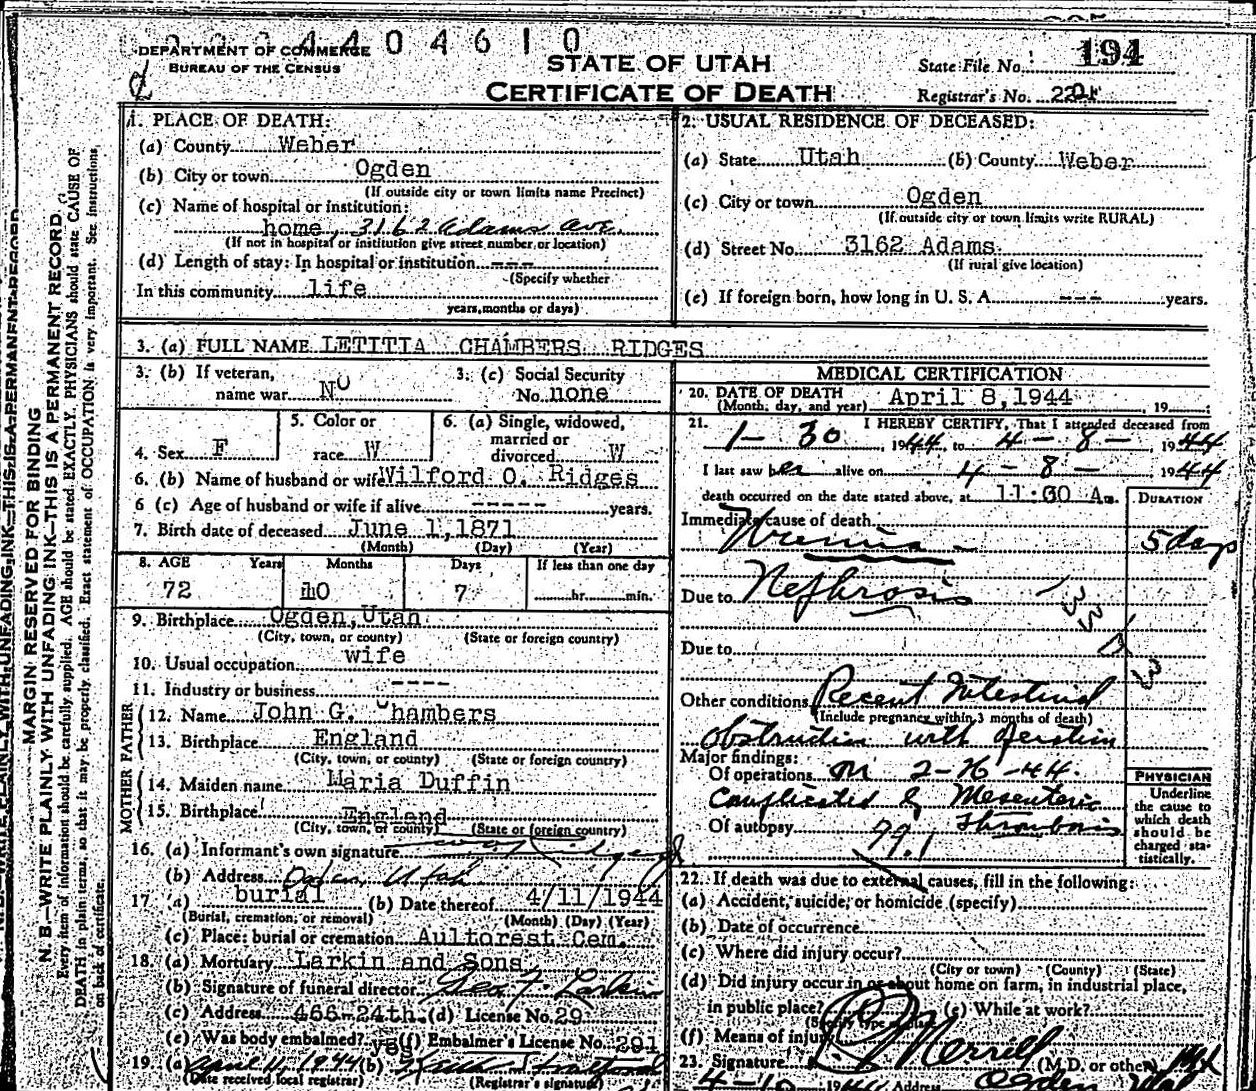 DEPARTMENT OF COMMERCE
BUREAU OF THE CENSUS
4 4 0 4 6 1 0
STATE OF UTAH
CERTIFICATE OF DEATH
State File No. 194
Registrar's No. 220
1. PLACE OF DEATH:
(a) County Weber
(b) City or town Ogden
(If outside city or town limits name Precinct)
(c) Name of hospital or institution:
home, 3162 Adams Ave.
(If not in hospital or institution give street number or location)
(d) Length of stay: In hospital or institution ---
(Specify whether
In this community life
years, months or days)
2. USUAL RESIDENCE OF DECEASED:
(a) State Utah (b) County Weber
(c) City or town Ogden
(If outside city or town limits write RURAL)
(d) Street No. 3162 Adams
(If rural give location)
(e) If foreign born, how long in U. S. A. --- years.
3. (a) FULL NAME LETITIA CHAMBERS RIDGES
3. (b) If veteran, name war No
3. (c) Social Security No. none
4. Sex F
5. Color or race W
6. (a) Single, widowed, married or divorced W
6. (b) Name of husband or wife Wilford O. Ridges
6 (c) Age of husband or wife if alive ----- years.
7. Birth date of deceased June 1, 1871
(Month) (Day) (Year)
8. AGE Years Months Days If less than one day
72 10 7 hr. min.
9. Birthplace Ogden, Utah
(City, town, or county) (State or foreign country)
10. Usual occupation wife
11. Industry or business ----
FATHER
12. Name John G. Chambers
13. Birthplace England
(City, town, or county) (State or foreign country)
MOTHER
14. Maiden name Maria Duffin
15. Birthplace England
(City, town, or county) (State or foreign country)
16. (a) Informant's own signature
(b) Address Ogden, Utah
17 (a) burial (b) Date thereof 4/11/1944
(Burial, cremation, or removal) (Month) (Day) (Year)
(c) Place: burial or cremation Aultorest Cem.
18. (a) Mortuary Larkin and Sons
(b) Signature of funeral director Geo. F. Larkin
(c) Address 466-24th. (d) License No. 29
(e) Was body embalmed? yes (f) Embalmer's License No. 291
19 (a) April 11, 1944 (b)
(Date received local registrar) (Registrar's signature)
MEDICAL CERTIFICATION
20. DATE OF DEATH April 8, 1944, 19
(Month, day, and year)
21. I HEREBY CERTIFY, That I attended deceased from
1-30, 1944, to 4-8-, 1944
I last saw her alive on 4-8-1944
death occurred on the date stated above, at 11:00 A m.
DURATION
Immediate cause of death
Uremia - 5 days
Due to Nephrosis
Due to
Other conditions Recent Intestinal
(Include pregnancy within 3 months of death)
Obstruction with
Major findings:
Of operations on 2-26-44.
Complicated by Mesenteric
Thrombosis
Of autopsy 99.1
PHYSICIAN
Underline
the cause to
which death
should be
charged sta-
tistically.
22. If death was due to external causes, fill in the following:
(a) Accident, suicide, or homicide (specify)
(b) Date of occurrence
(c) Where did injury occur?
(City or town) (County) (State)
(d) Did injury occur in or about home on farm, in industrial place,
in public place? (e) While at work?
(Specify type of place)
(f) Means of injury
23. Signature Merrill (M.D. or other) Md
4-10 1944 Address
MARGIN RESERVED FOR BINDING
N. B.—WRITE PLAINLY WITH UNFADING INK—THIS IS A PERMANENT RECORD.
Every item of information should be carefully supplied. AGE should be stated EXACTLY. PHYSICIANS should state CAUSE OF
DEATH in plain terms, so that it may be properly classified. Exact statement of OCCUPATION is very important. See instructions
on back of certificate.
N. B.—WRITE PLAINLY WITH UNFADING INK—THIS IS A PERMANENT RECORD